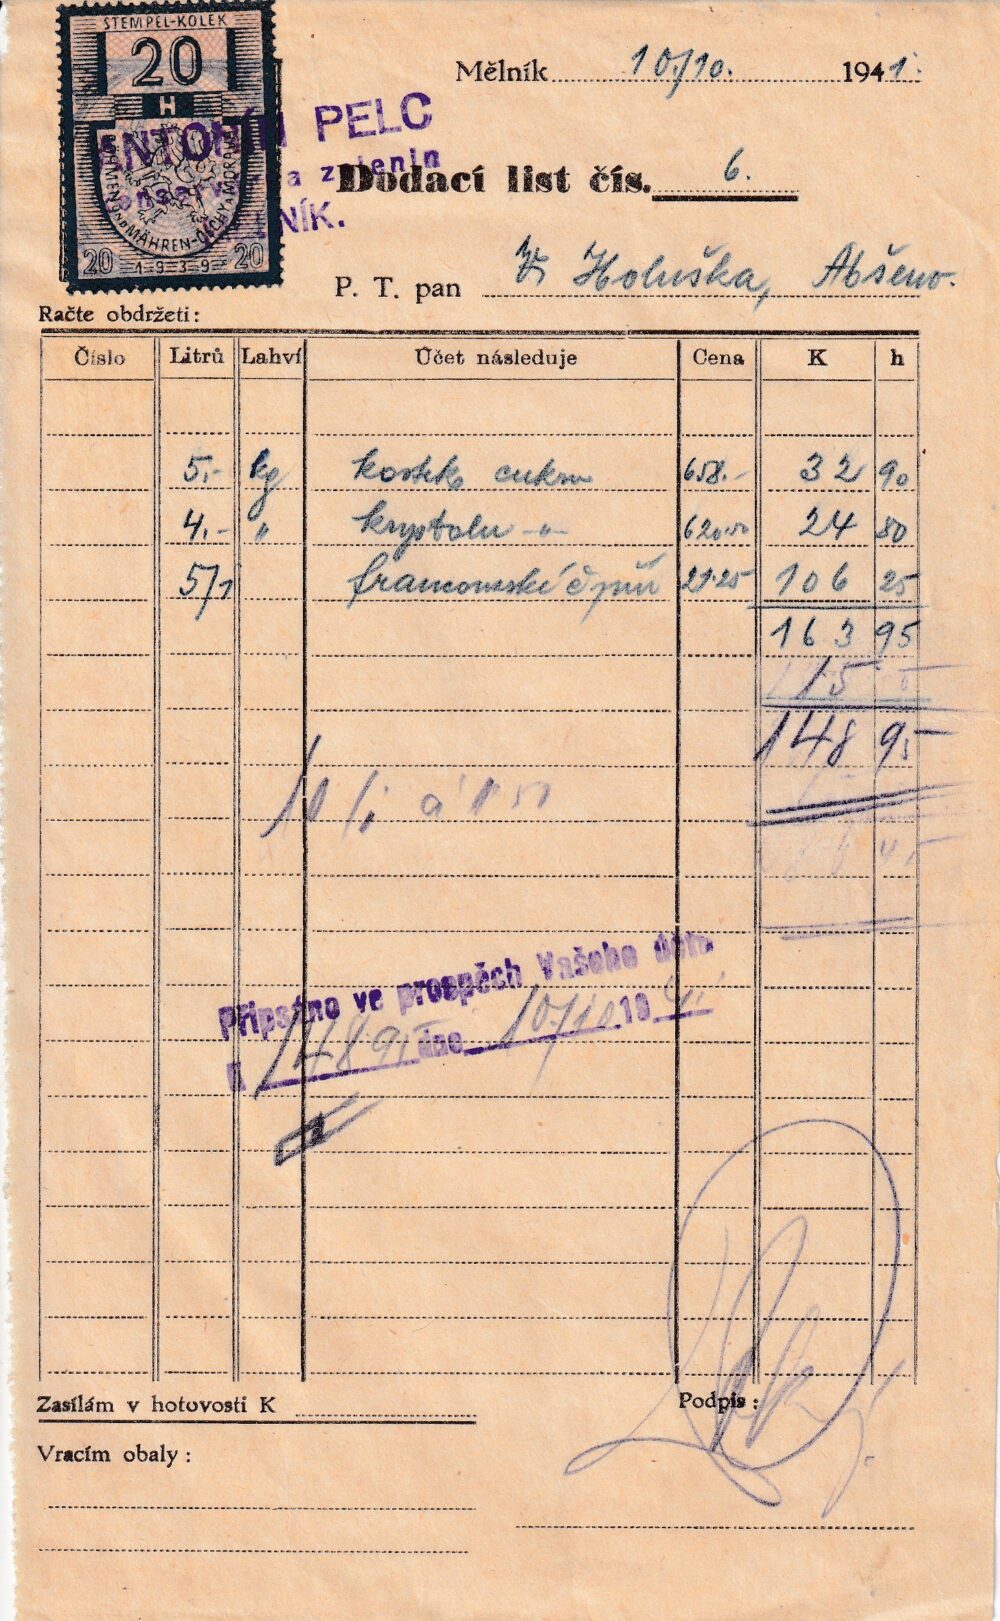 STEMPEL-KOLEK
20
H
BÖHMEN UND MÄHREN-ČECHY A MORAVA
20 1939 20
ANTONÍN PELC
a zelenin
NÍK.
Mělník 10/10. 1941.
Dodací list čís. 6.
P. T. pan Holuška,
Račte obdržeti:
Číslo Litrů Lahví Účet následuje Cena K h
5.- kg kostek cukru 658.- 32 90
4.- " krystalu -"- 620.50 24 80
5/1 21.25 106 25
163 95
15
148 95
10 á 1 50
Připsáno ve prospěch Vašeho účtu
K 148 95 dne 10/10 19 41
Zasílám v hotovosti K
Podpis:
Vracím obaly: